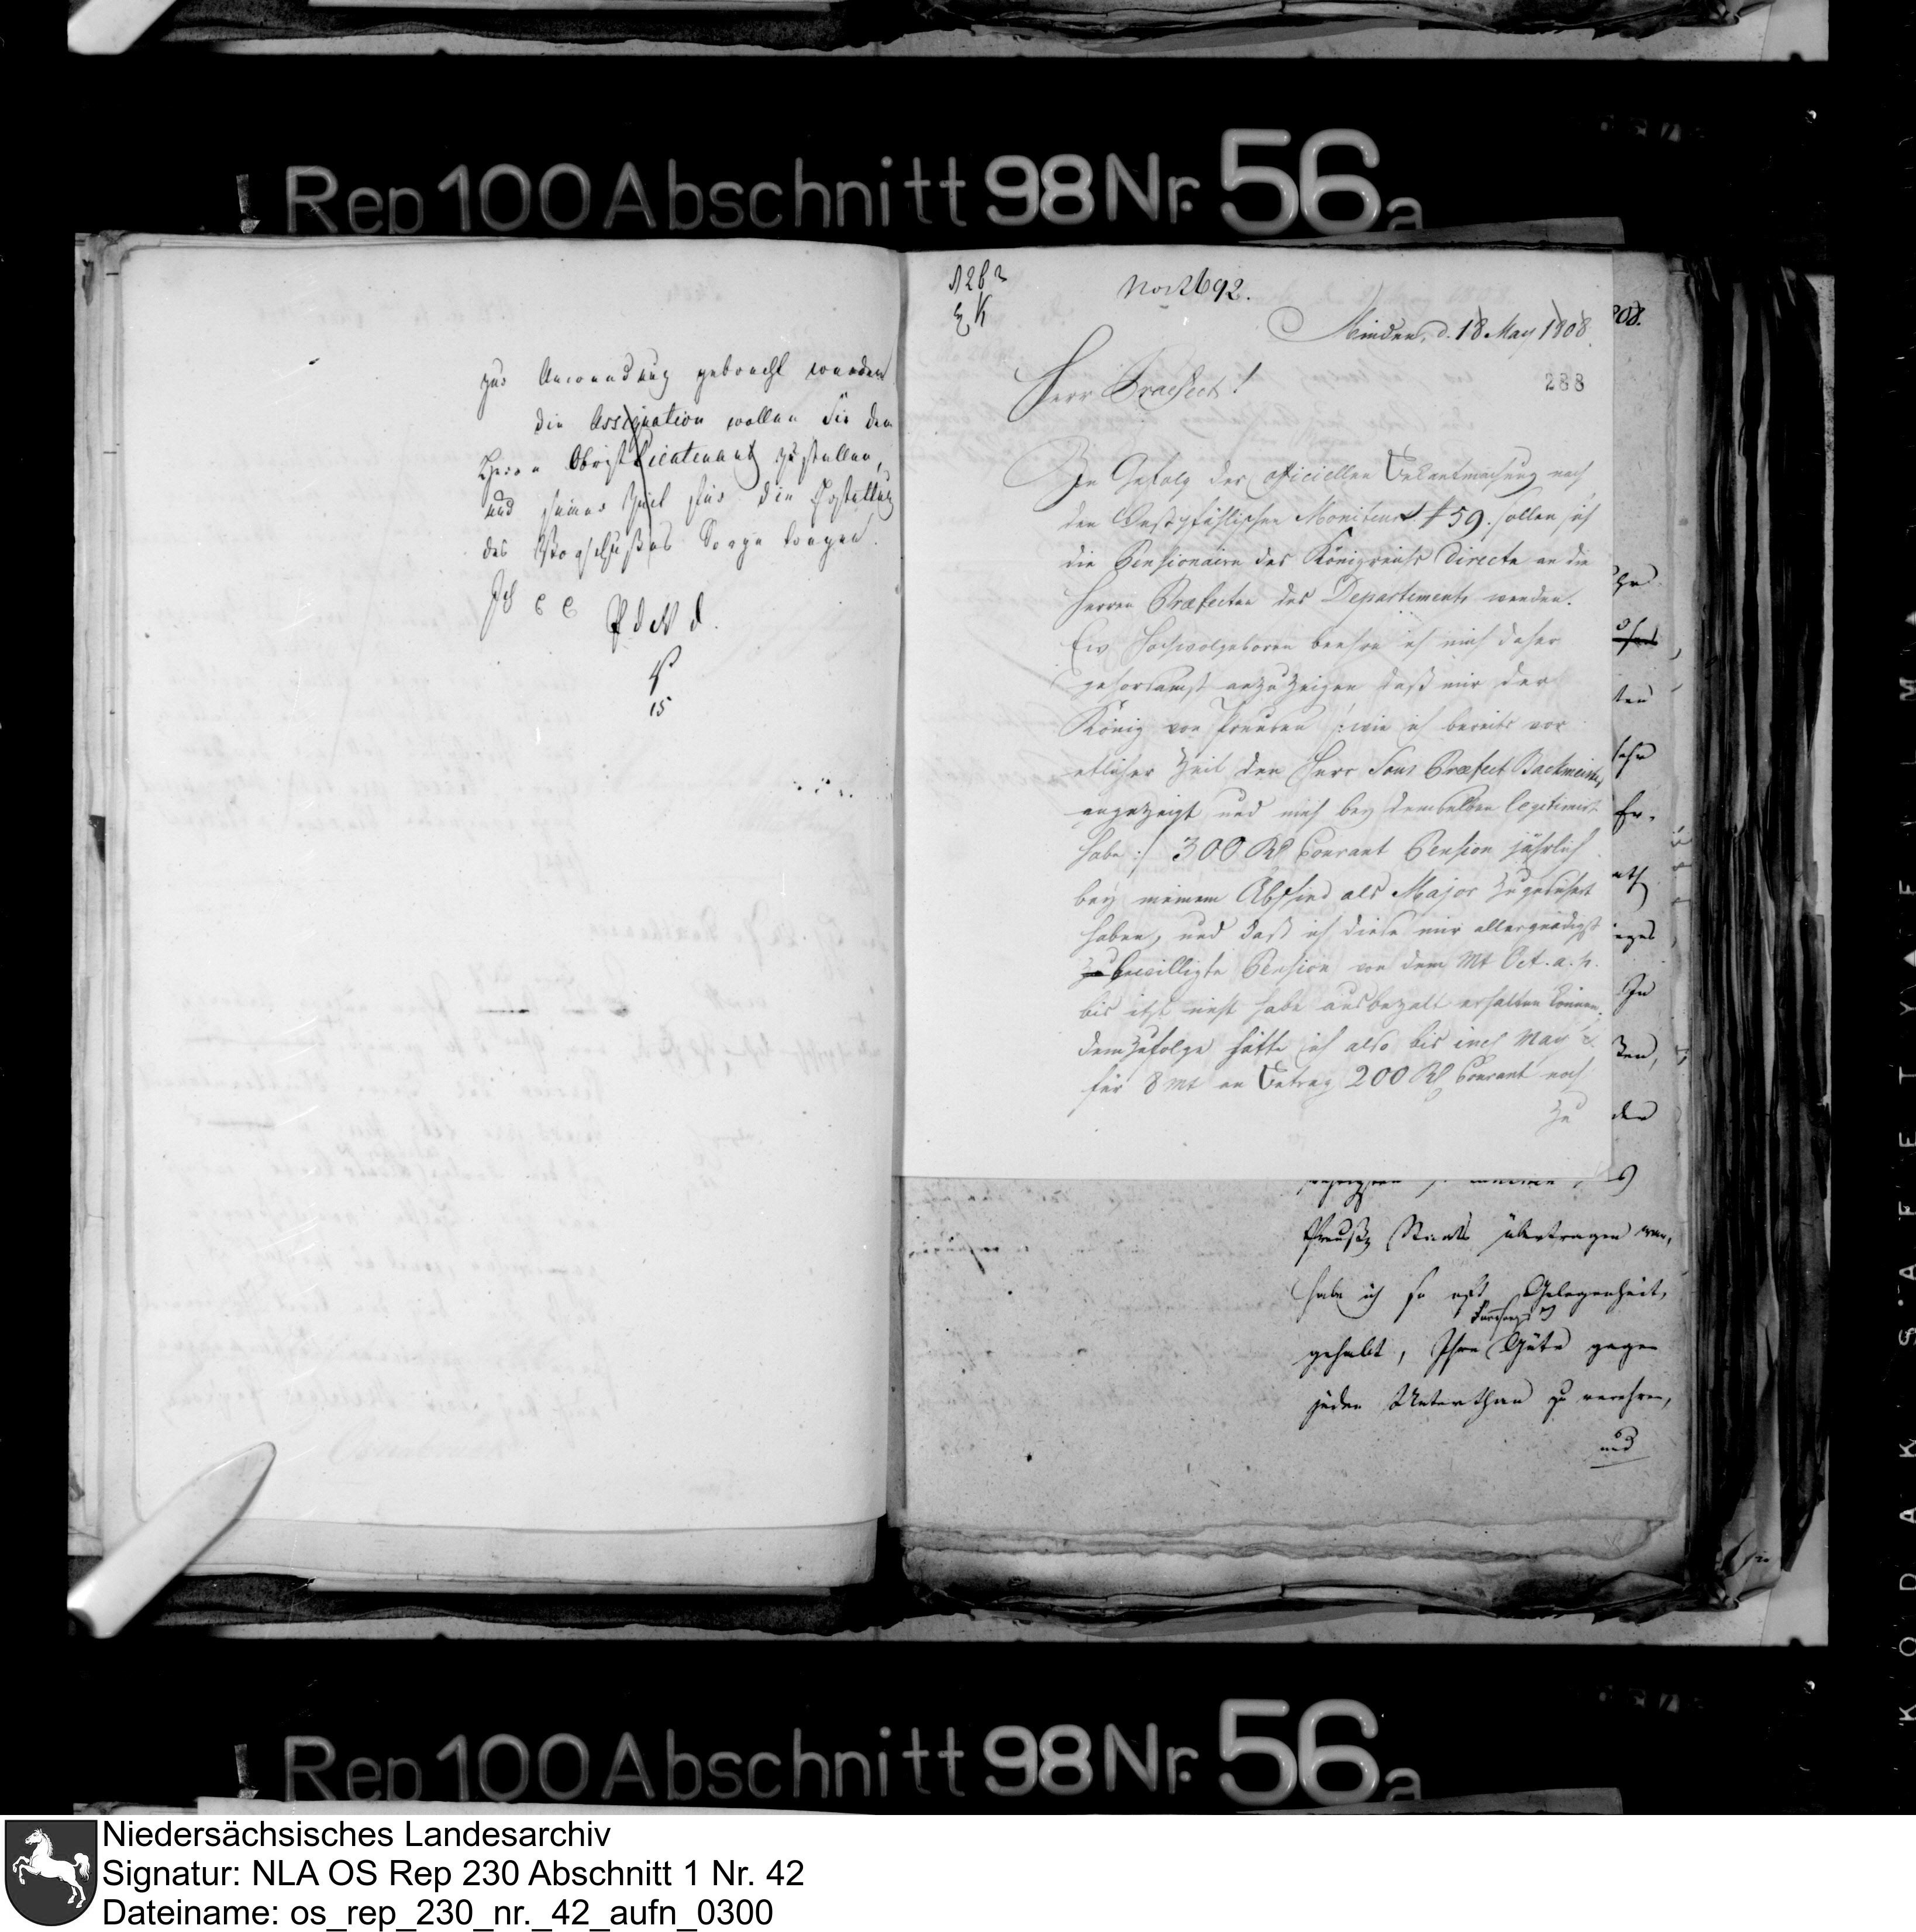 Rep 100 Abschnitt 98 Nr. 56a
zur Anwendung gebracht werden
die Assignation wollen Sie dem
Herrn Obristlieutenant zustellen,
und seiner Zeit für die Erstattung
des Vorschußes Sorge tragen.
P d N d.
15
No 2692.
Minden, d. 18 May 1808.
808.
Herr Praefect!
288
In Gefolg der officiellen Bekantmachung nach
den Westphälischen Moniteur # 59. sollen sich
die Pensionairn des Königreichs directe an die
Herren Præfecten des Departements wenden.
Ew Hochwolgeboren beehre ich mich daher
gehorsamst anzuzeigen daß mir der
König von Preussen /: wie ich bereits vor
etlicher Zeit den Herr Sous Præfect Backmeister,
angezeigt und mich bey demselben legitimirt
habe :/ 300 Rl Courant Pension jährlich
bey meinem Abschied als Major zugesichert
haben, und daß ich diese mir allergnädigst
bewilligte Pension von dem Mt Oct. a. p.
bis itzt nicht habe ausbezalt erhalten können.
demzufolge hätte ich also bis incl May
für 8 Mt an Betrag 200 Rl Courant noch
zu
Preuß Staats übertragen war,
habe ich so oft Gelegenheit,
gehabt, Ihre Güte gegen
jeden Unterthan zu verehren,
und
Rep 100 Abschnitt 98 Nr. 56a
KODAK SAFETY FILM
Niedersächsisches Landesarchiv
Signatur: NLA OS Rep 230 Abschnitt 1 Nr. 42
Dateiname: os_rep_230_nr._42_aufn_0300